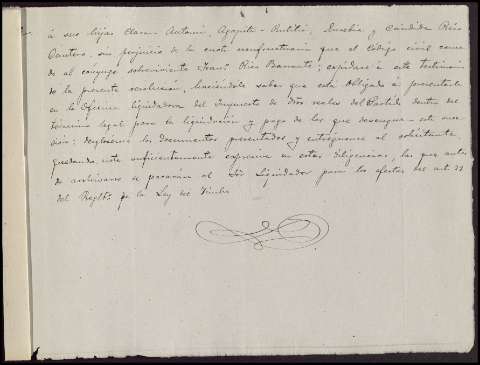 á sus hijos Clara - Antonia, Agapito - Rutilio, Eusebia y Cándida Ríos
Cantero, sin perjuicio de la cuota usufructuaria que el Código civil conce
de al conyuge sobreviviente Franco Ríos Barnuete; expídase á este testimonio
de la presente resolucion, haciéndole saber que está obligado á presentarle
en la Oficina liquidadora del Impuesto de dros reales del Partido dentro del
término legal para la liquidacion y pago de los que devengue esta suce
sión: desglosense los documentos presentados y entréguense al solicitante
quedando nota suficientemente expresiva en estas diligencias, las que antes
de archivarse se pasarán al Sor Liquidador para los efectos del art.
del Reglto de la Ley del Timbre